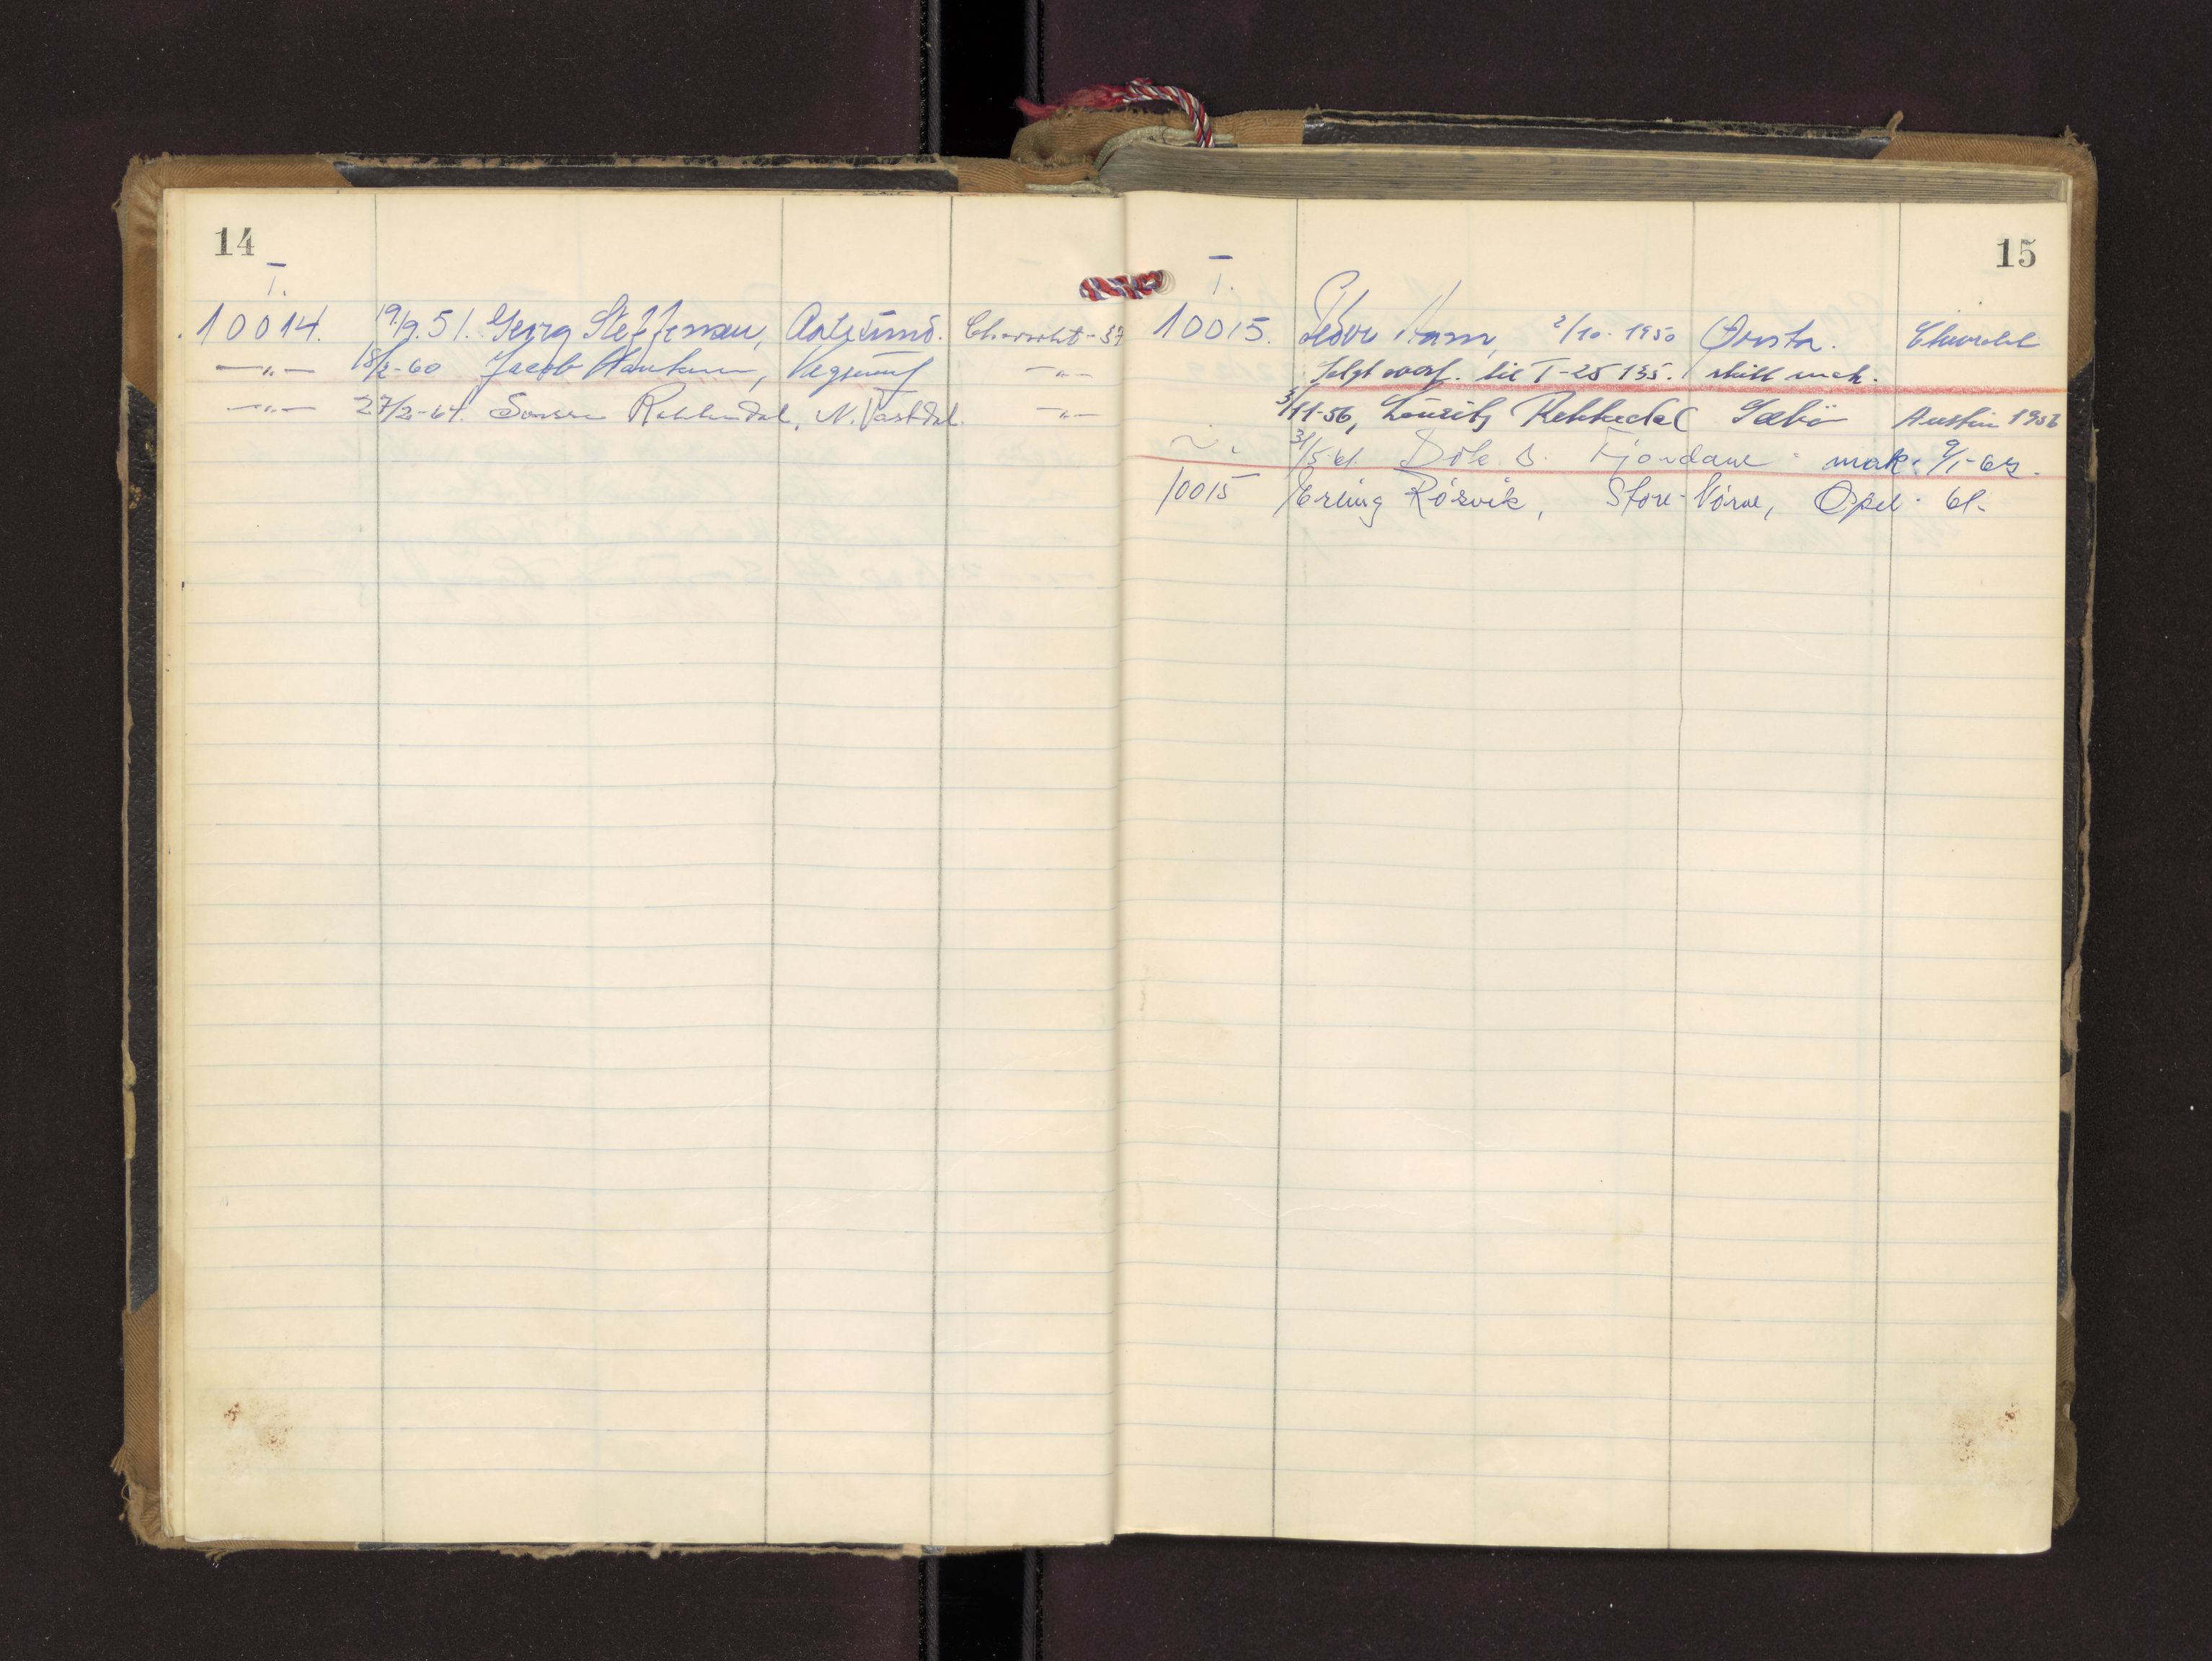 14
T.
10014. 19/9.51. Georg Steffensen, Aalesund. Chevrolet-37
—"— 18/2-60 Jacob Vegsund —"—
—"— 27/2-64. N. Vartdal. —"—
15
T.
10015. Peder Ham, 2/10-1950 Ørsta. Chevrolet
Solgt til T-25135. skilt mak.
3/11-56, Lauritz Rekkedal Sæbö Austin 1956
~. 31/5-61. Dök. S. Fjordane mak. 9/1-63.
10015 Erling Rösvik, Store-Vörne, Opel-61.